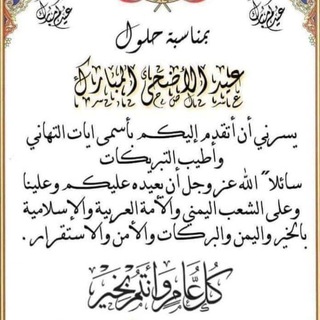 عيد مبارك
عيد مبارك
بمناسبة حلول
عيد الأضحى المبارك
يسرني أن أتقدم إليكم بأسمى ايات التهاني
وأطيب التبريكات
سائلا" الله عز وجل أن يعيده عليكم وعلينا
وعلى الشعب اليمني والأمة العربية والإسلامية
بالخير واليمن والبركات والأمن والاستقرار .
كل عام وأنتم بخير